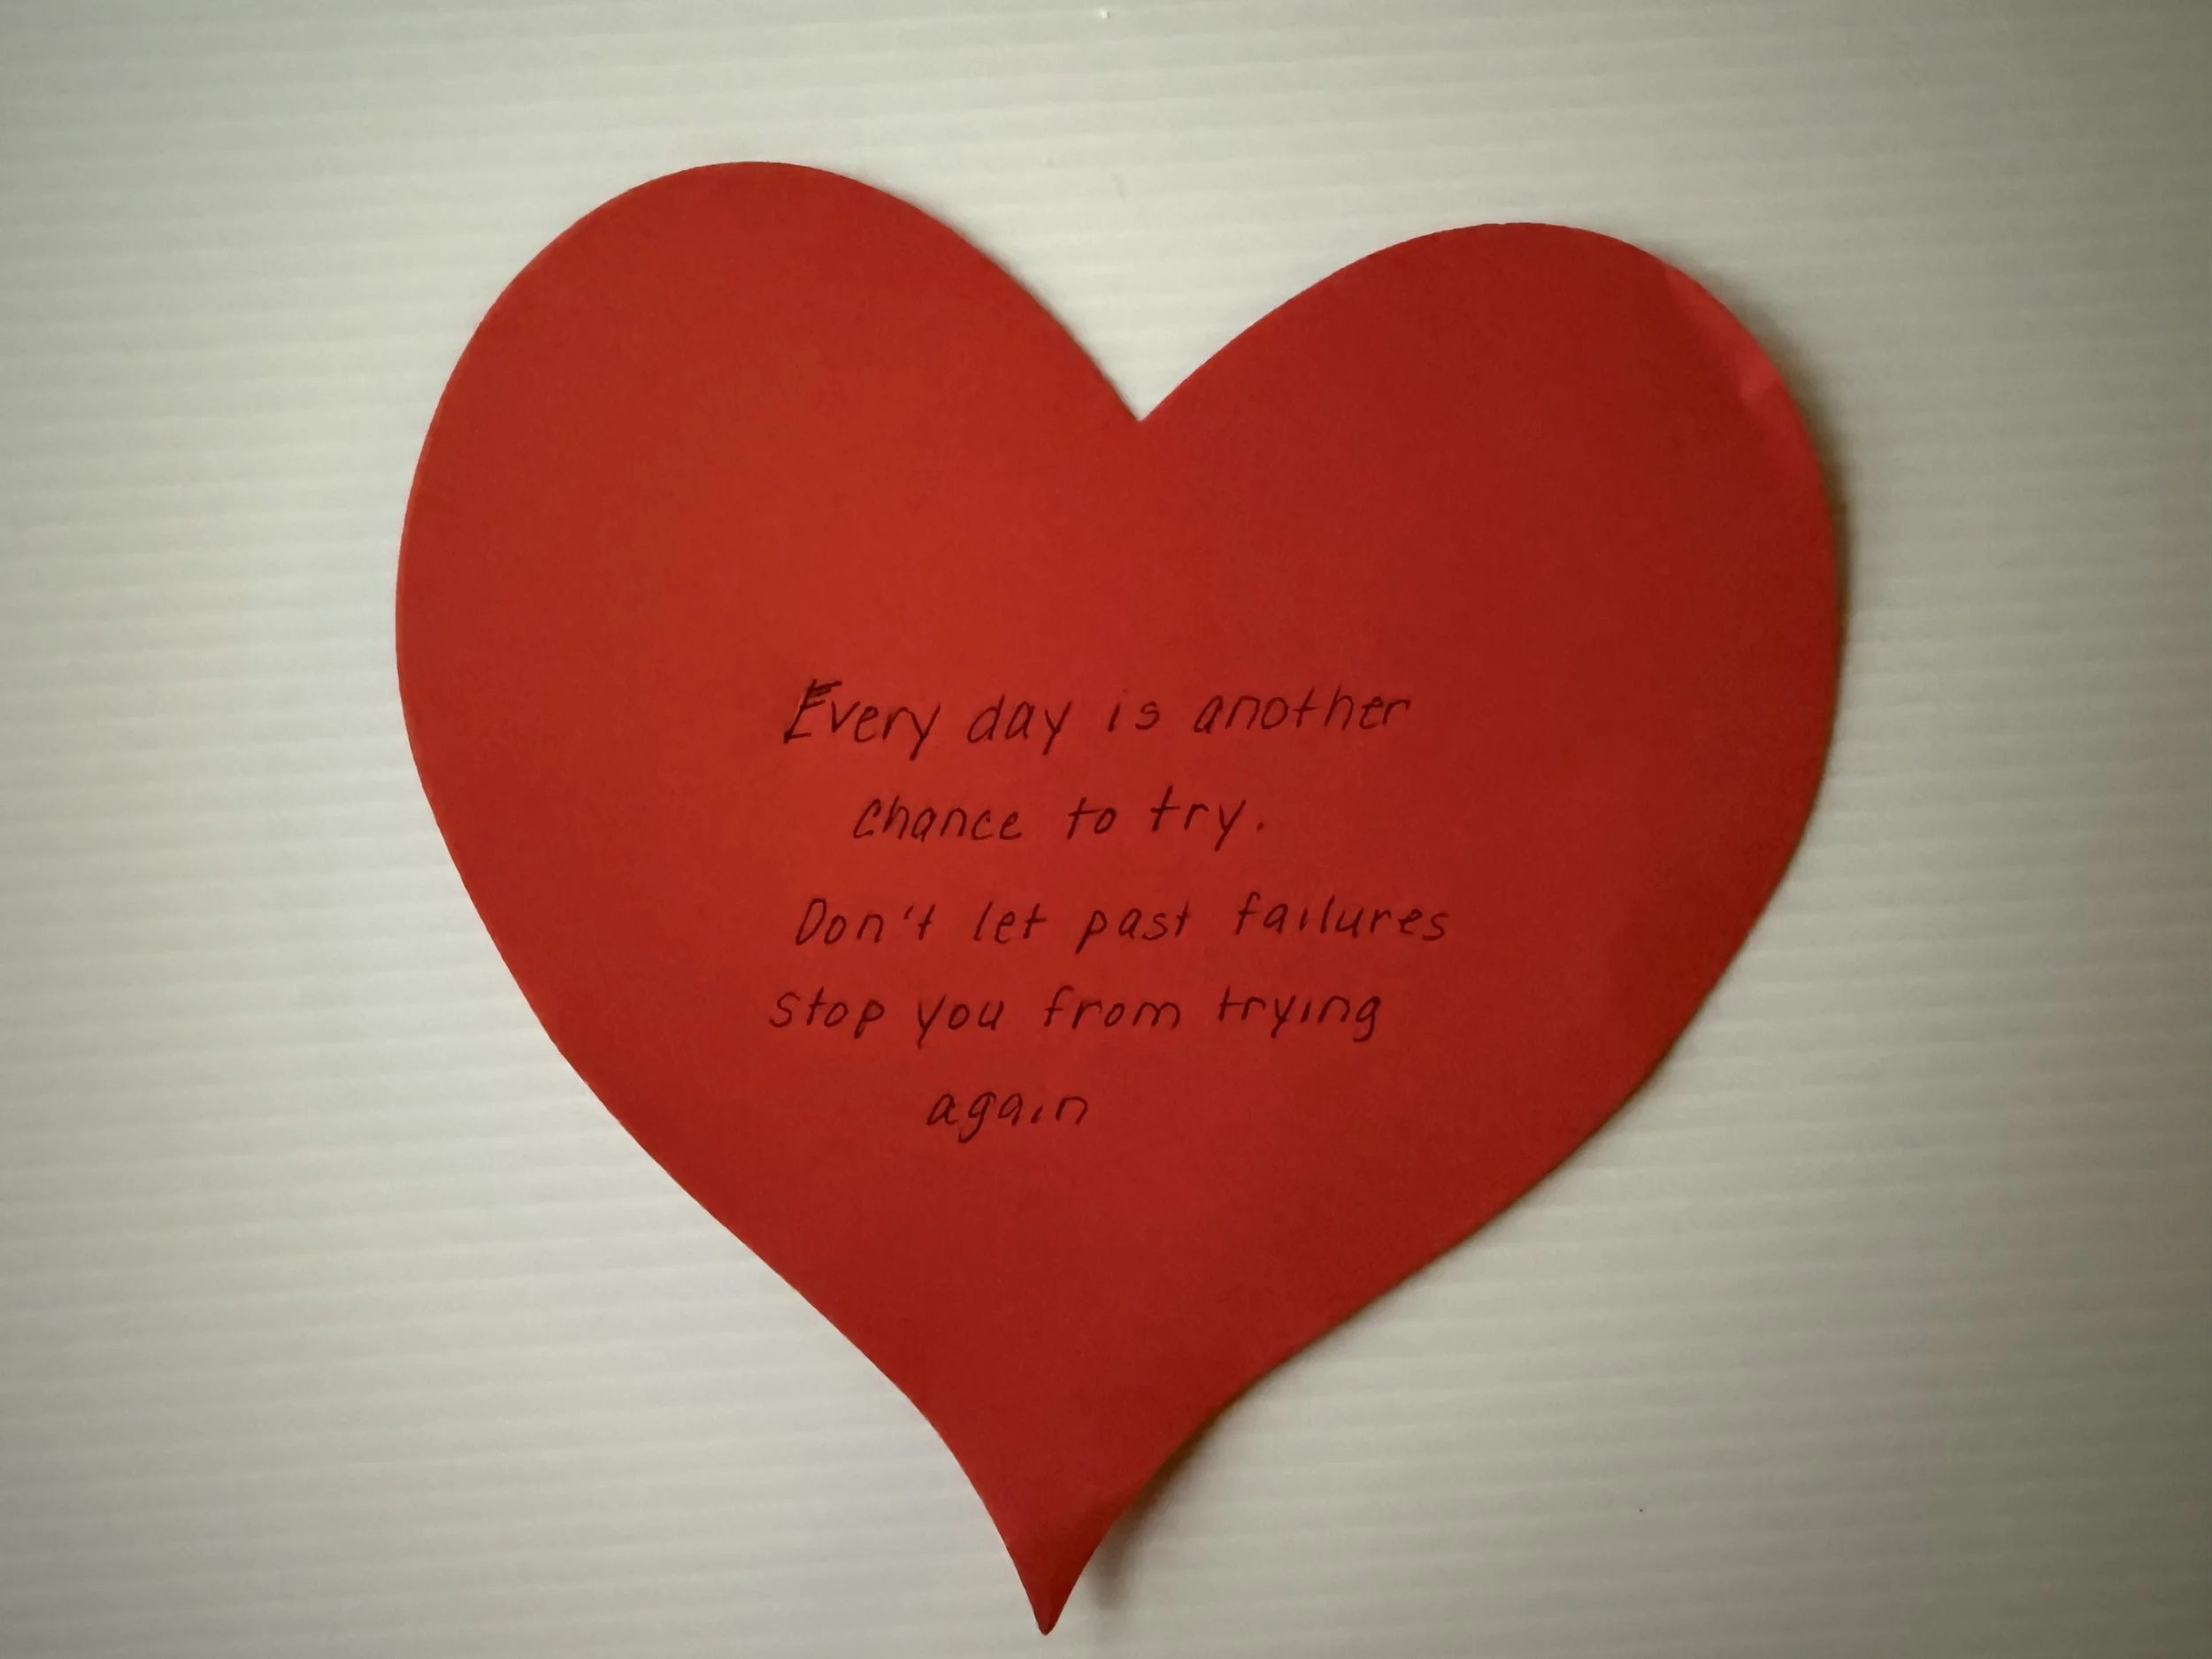 Every day is another
chance to try.
Don't let past failures
stop you from trying
again